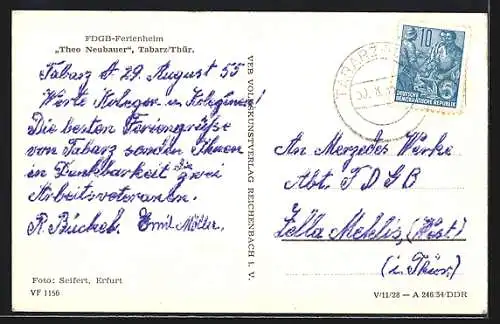 FDGB-Ferienheim
„Theo Neubauer", Tabarz/Thür.
Tabarz d 29. August 55
Werte Kolegen u. Koleginnen!
Die besten Feriengrüße
von Tabarz senden Ihnen
in Dankbarkeit die zwei
Arbeitsveteranen.
R. Büchel. Emil Möller.
Foto: Seifert, Erfurt
VF 1156
VEB VOLKSKUNSTVERLAG REICHENBACH i. V.
TABARZ
10
DEUTSCHE
DEMOKRATISCHE REPUBLIK
An Merzedes Werke
Abt. FDGB
Zella Mehlis, (West)
(i. Thür.)
V/11/28 – A 246/54/DDR